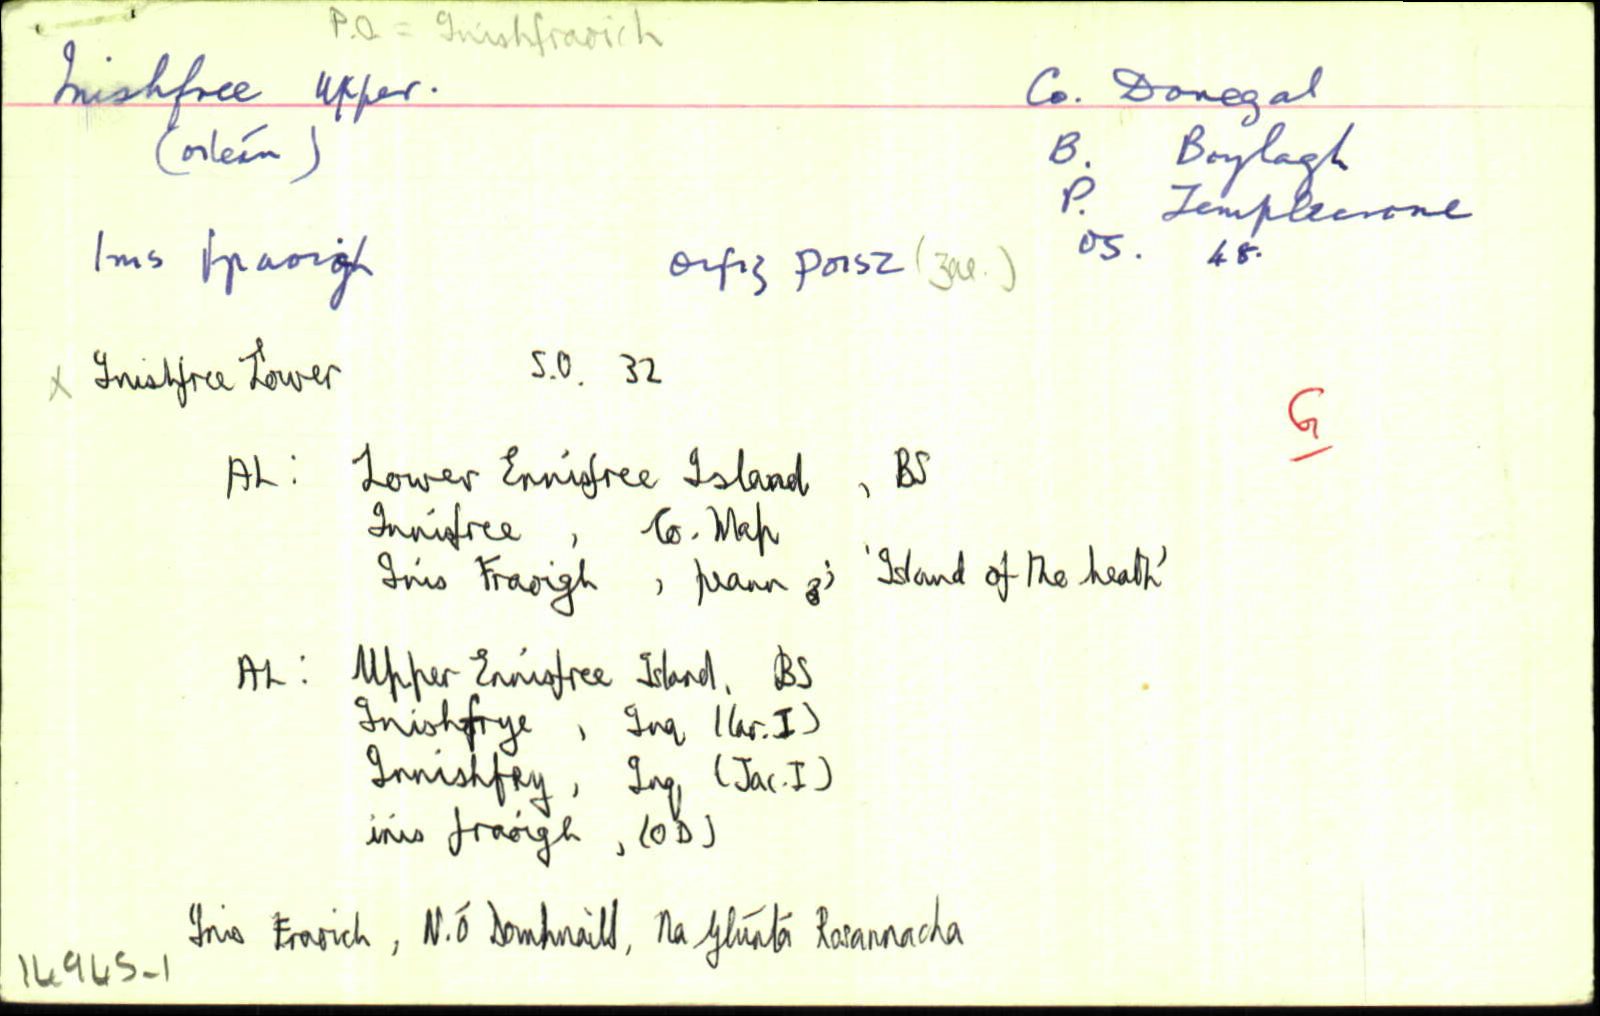 P.O. = Inishfraoich
Inishfree Upper. Co. Donegal
(oileán) B. Boylagh
P. Templecrone
Inis Fraoigh Oifig Poist (Gae.) OS. 48.
x Inishfree Lower S.O. 32
G
AL: Lower Ennisfree Island, BS
Innisfree, Co. Map
Inis Fraoigh, peann 'Island of the heath'
AL: Upper Ennisfree Island, BS
Inishfrye, Inq (Car. I)
Innishfry, Inq (Jac. I)
inis fraoigh, (OD)
Inis Fraoich, N. Ó Domhnaill, Na Glúnta Rosannacha
14945-1